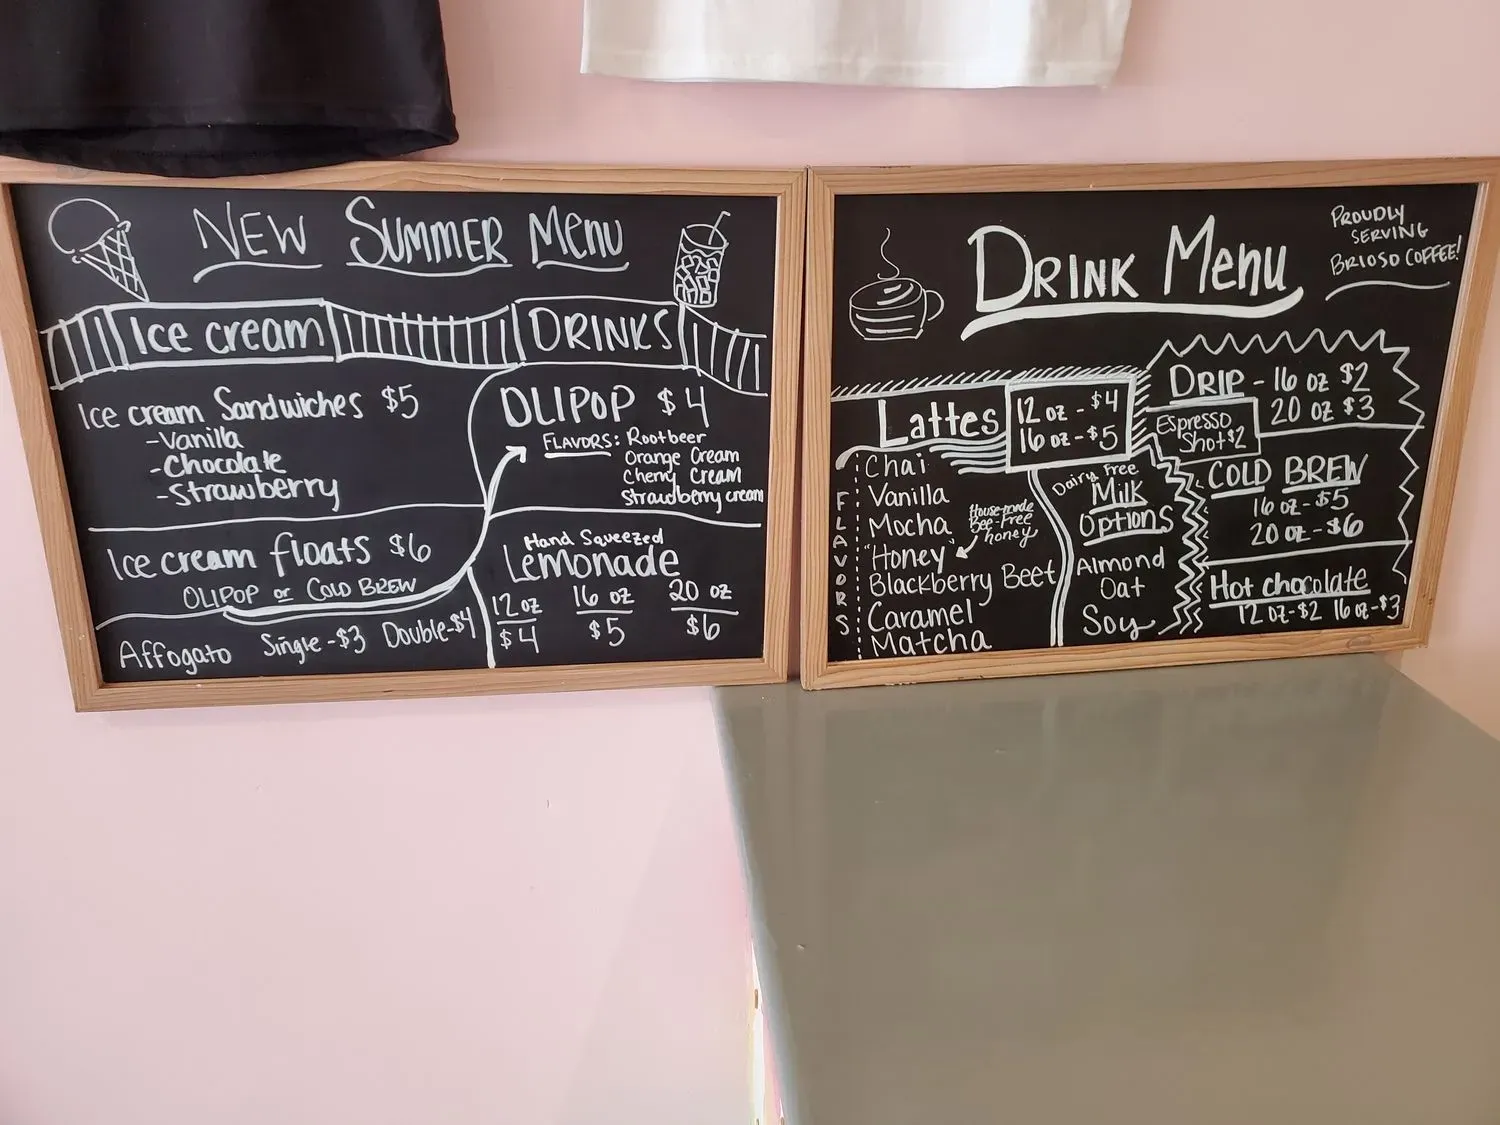 NEW SUMMER MENU
Ice cream
DRINKS
Ice cream Sandwiches $5
-Vanilla
-Chocolate
-Strawberry
Ice cream floats $6
OLIPOP or COLD BREW
Affogato Single-$3 Double-$4
OLIPOP $4
FLAVORS: Rootbeer
Orange Cream
Cherry Cream
Strawberry cream
Hand Squeezed
Lemonade
12 oz 16 oz 20 oz
$4 $5 $6
DRINK MENU
PROUDLY
SERVING
BRIOSO COFFEE!
Lattes
12 oz - $4
16 oz - $5
FLAVORS
Chai
Vanilla
Mocha
"Honey"
Blackberry Beet
Caramel
Matcha
House-made
Bee-Free
honey
Dairy Free
Milk
Options
Almond
Oat
Soy
DRIP - 16 oz $2
20 oz $3
Espresso
Shot $2
COLD BREW
16 oz - $5
20 oz - $6
Hot chocolate
12 oz-$2 16 oz-$3